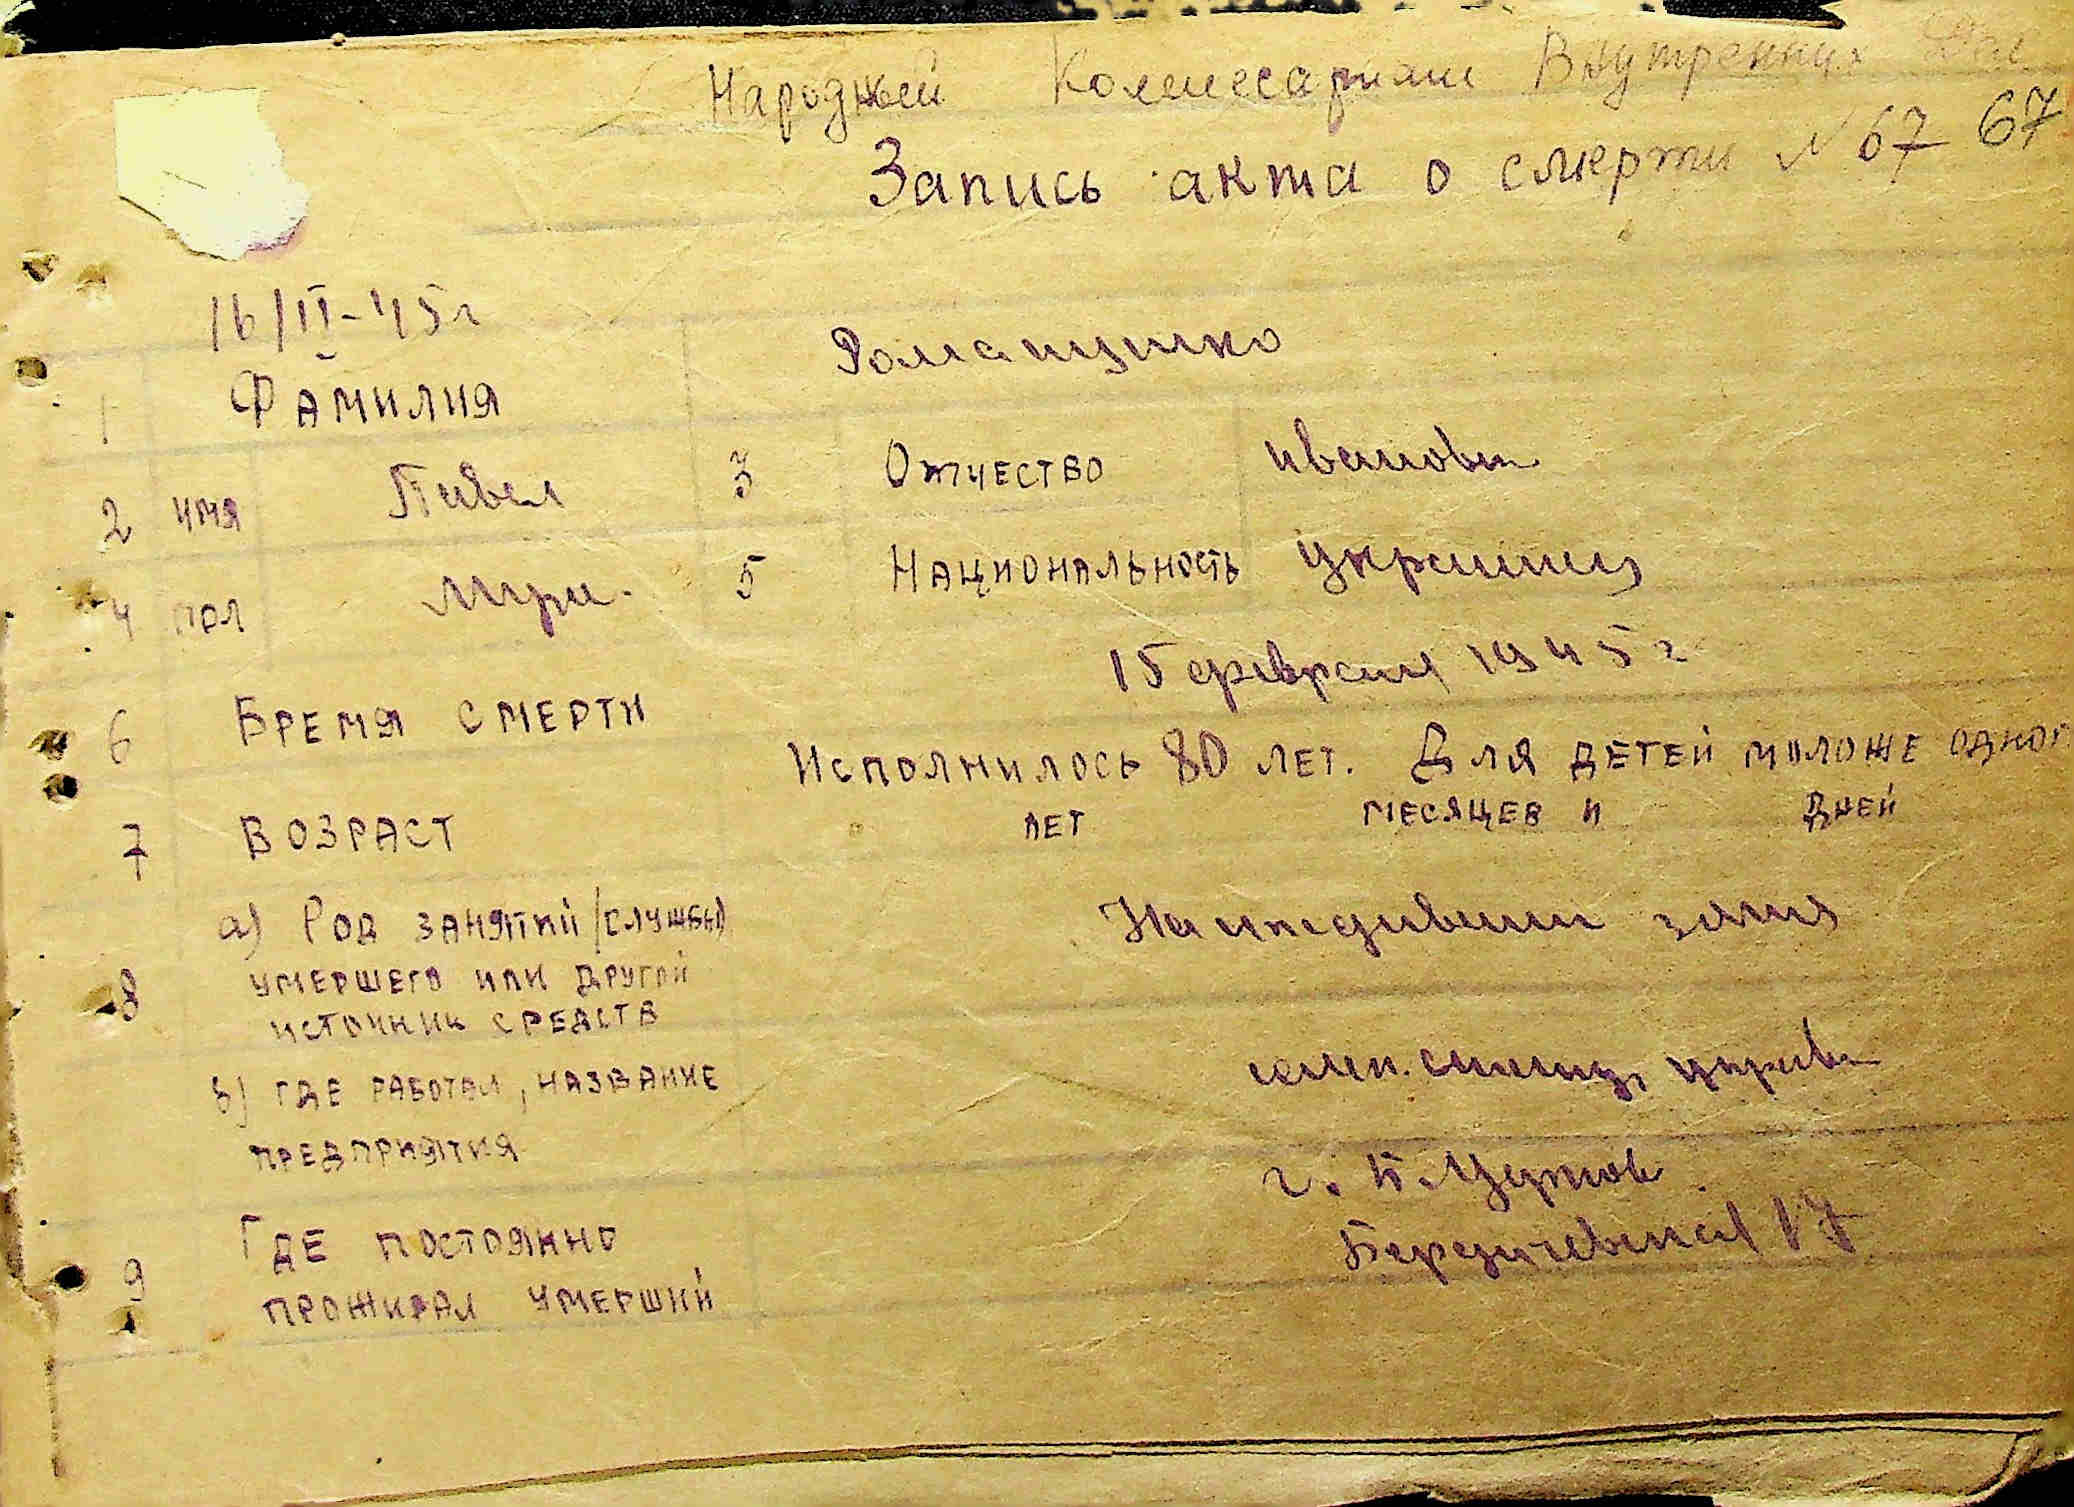 Народный Комиссариат Внутренних Дел
Запись акта о смерти N 67 67
16/II-45г
1 Фамилия Романушко
2 имя Павел 3 Отчество Иванович
4 пол Муж. 5 Национальность Украинец
6 Время смерти 15 февраля 1945 г
7 Возраст Исполнилось 80 лет. Для детей моложе одног
лет месяцев и дней
8 а) Род занятий (службы) На иждивении
умершего или другой
источник средств
b) где работал, название
предприятия
9 Где постоянно г.
проживал умерший Бердичевская 17